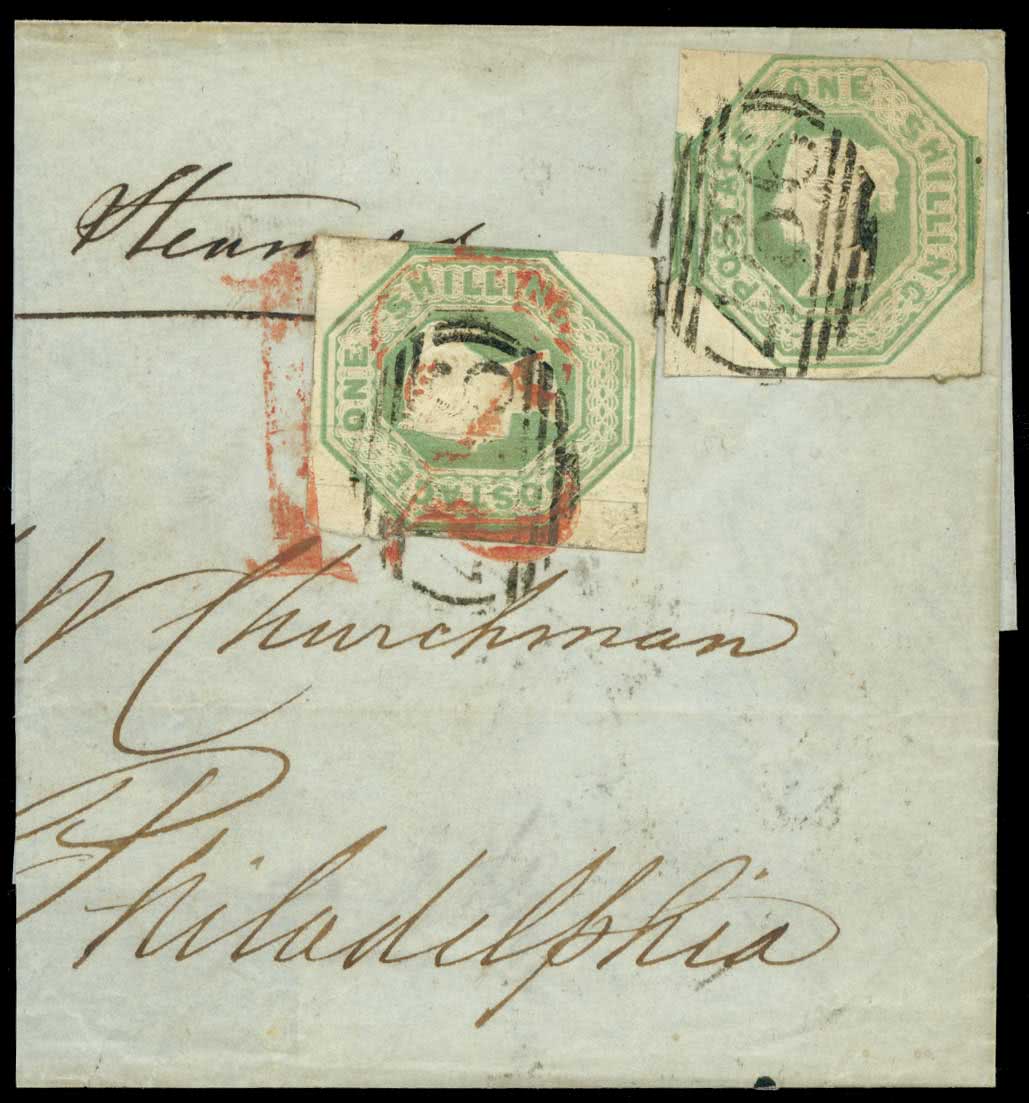 ONE SHILLING POSTAGE
Steamer
ONE SHILLING POSTAGE
W Churchman
Philadelphia